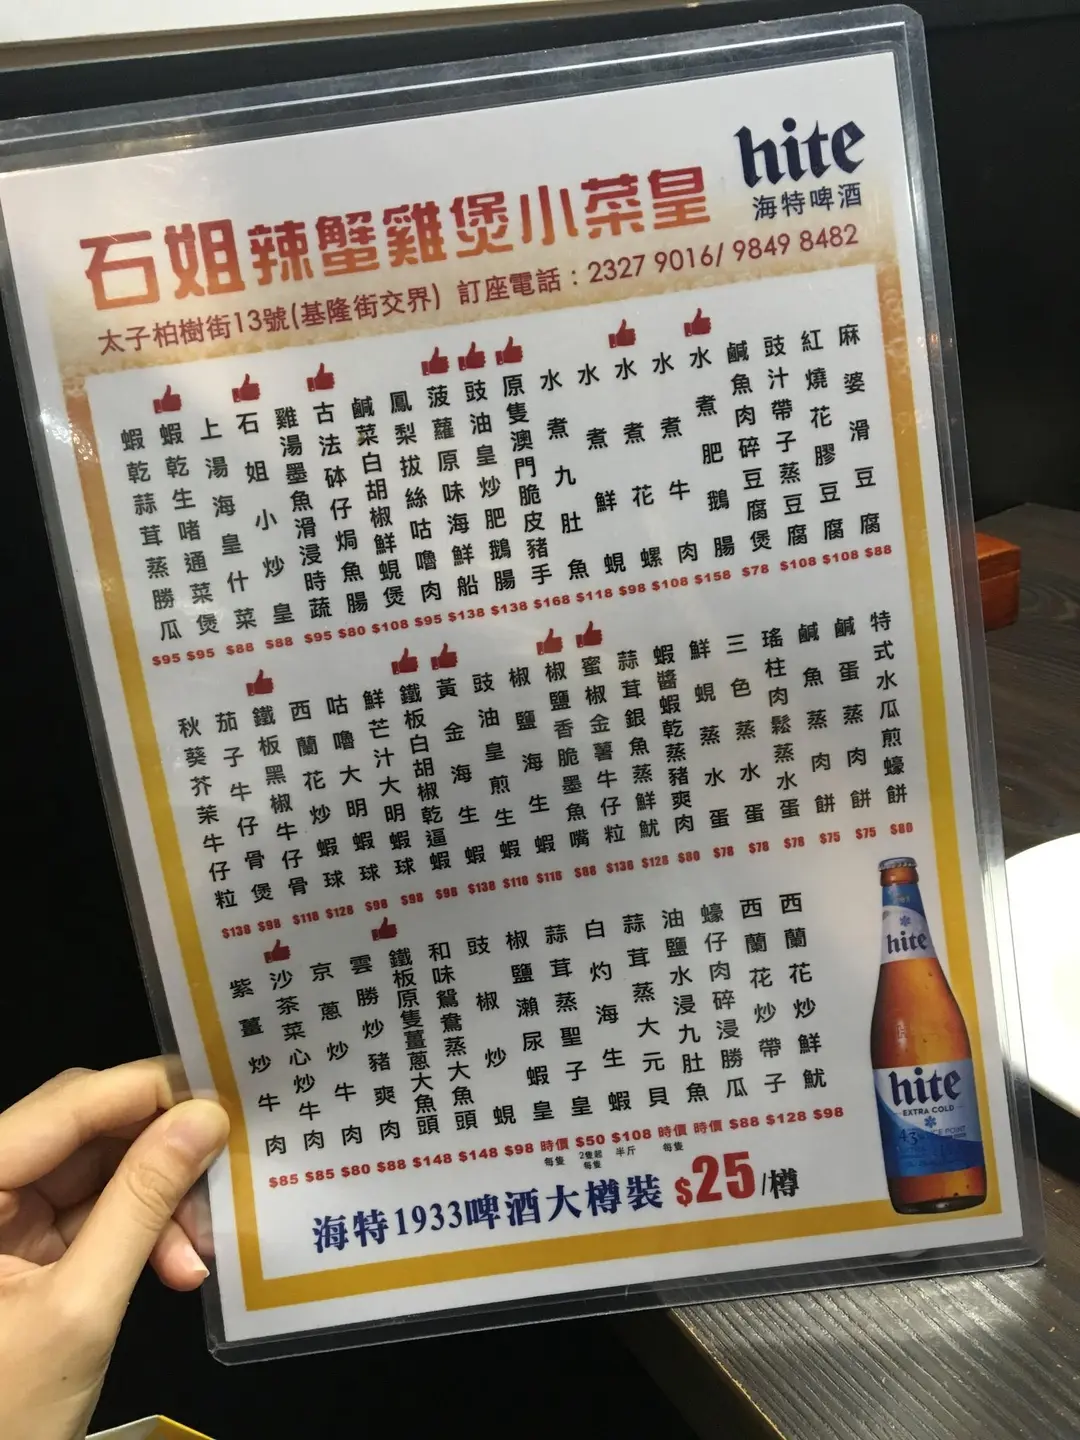 hite
海特啤酒
石姐辣蟹雞煲小菜皇
太子柏樹街13號(基隆街交界) 訂座電話：2327 9016/ 9849 8482
蝦乾蒜茸蒸勝瓜
蝦乾生啫通菜煲
上湯海皇什菜
石姐小炒皇
雞湯墨魚滑浸時蔬
古法砵仔焗魚腸
鹹菜白胡椒鮮蜆煲
鳳梨拔絲咕嚕肉
菠蘿原味海鮮船
豉油皇炒肥鵝腸
原隻澳門脆皮豬手
水煮九肚魚
水煮鮮蜆
水煮花螺
水煮牛肉
水煮肥鵝腸
鹹魚肉碎豆腐煲
豉汁帶子蒸豆腐
紅燒花膠豆腐
麻婆滑豆腐
$95 $95 $88 $88 $95 $80 $108 $95 $138 $138 $168 $118 $98 $108 $158 $78 $108 $108 $88
秋葵芥茉牛仔粒
茄子牛仔骨煲
鐵板黑椒牛仔骨
西蘭花炒蝦球
咕嚕大明蝦球
鮮芒汁大明蝦球
鐵板白胡椒乾逼蝦
黃金海生蝦
豉油皇煎生蝦
椒鹽海生蝦
椒鹽香脆墨魚嘴
蜜椒金薯牛仔粒
蒜茸銀魚蒸鮮魷
蝦醬蝦乾蒸豬爽肉
鮮蜆蒸水蛋
三色蒸水蛋
瑤柱肉鬆蒸水蛋
鹹魚蒸肉餅
鹹蛋蒸肉餅
特式水瓜煎蠔餅
$138 $98 $118 $128 $98 $98 $98 $138 $118 $118 $88 $138 $128 $80 $78 $78 $78 $75 $75 $80
紫薑炒牛肉
沙茶菜心炒牛肉
京蔥炒牛肉
雲勝炒豬爽肉
鐵板原隻薑蔥大魚頭
和味鴛鴦蒸大魚頭
豉椒炒蜆
椒鹽瀨尿蝦皇
蒜茸蒸聖子皇
白灼海生蝦
蒜茸蒸大元貝
油鹽水浸九肚魚
蠔仔肉碎浸勝瓜
西蘭花炒帶子
西蘭花炒鮮魷
$85 $85 $80 $88 $148 $148 $98 時價 $50 $108 時價 時價 $88 $128 $98
每隻 2隻起 半斤 每隻
每隻
海特1933啤酒大樽裝 $25/樽
hite
hite
EXTRA COLD